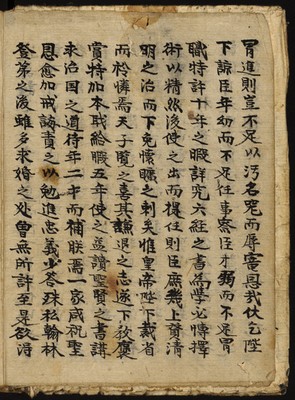 冒進則豈不足以汚名器而辱寵恩哉伏乞陛
下諒臣年幼而不足任事察臣才弱而不足冒
職特許十年之暇詳究六経之書為學必慱擇
術以精然後使之出而提任則臣庶幾上賛清
明之治而下免懷瞧之刺矣惟皇帝陛下裁省
而矜憐焉天子覽之喜其謙退之志遂下敎褒
賞特加本职給暇五年使之益讀聖賢之書講
求治国之道待年二十而補朕焉一家咸祝聖
恩愈加戒誨責之以勉進忠義以答殊私翰林
登第之後雖多求婚之处曽無所許至是欲淂